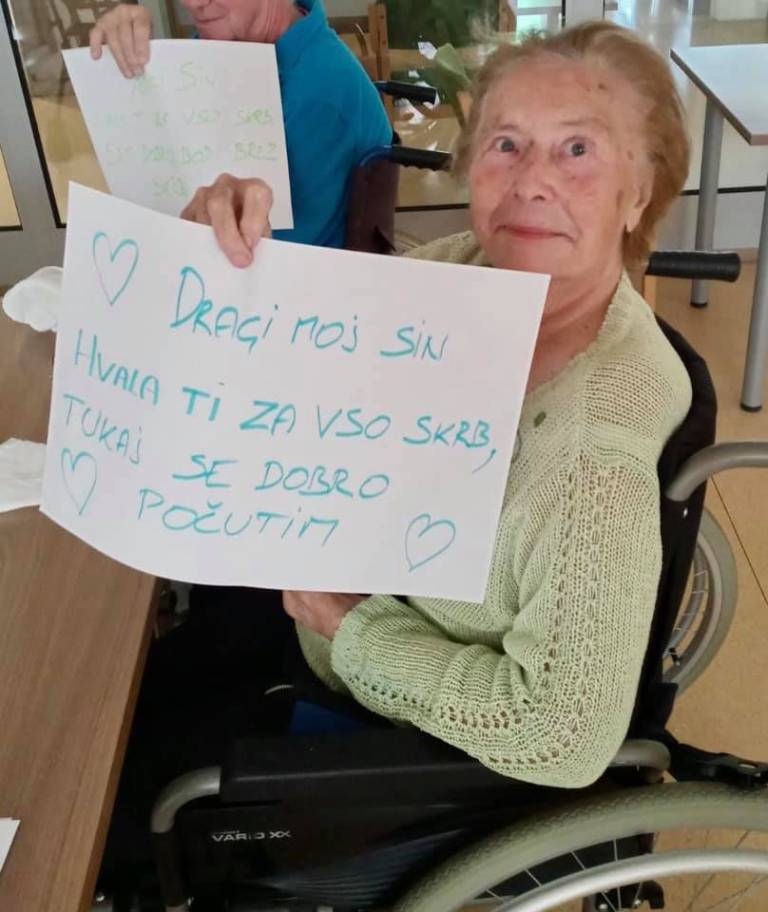 SIN
VSO SKRB
BREZ
DRAGI MOJ SIN
HVALA TI ZA VSO SKRB,
TUKAJ SE DOBRO
POČUTIM
VARIO XX